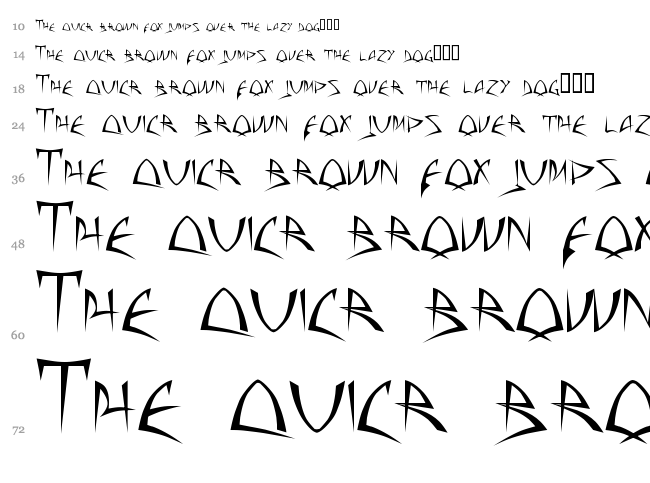 10 The quick brown fox jumps over the lazy dog□□□
14 The quick brown fox jumps over the lazy dog□□□
18 The quick brown fox jumps over the lazy dog□□□
24 The quick brown fox jumps over the laz
36 The quick brown fox jumps o
48 The quick brown fox
60 The quick brown
72 The quick bro